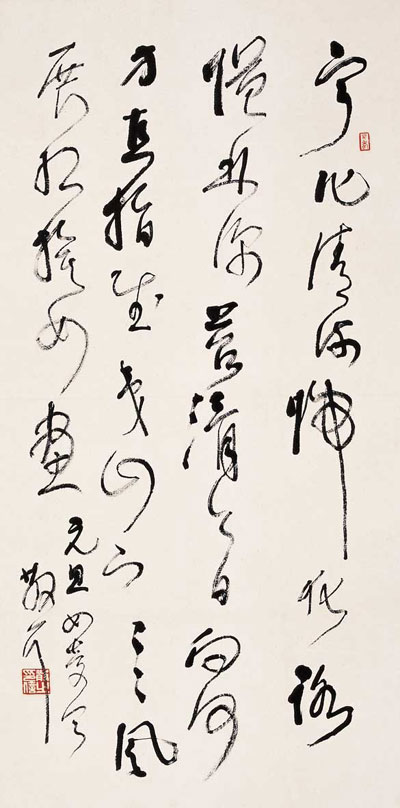 宁化清流歸化路
隘林深苔滑今日向何
方直指武夷山下〻〻風
展紅旗如畫
元旦如夢令